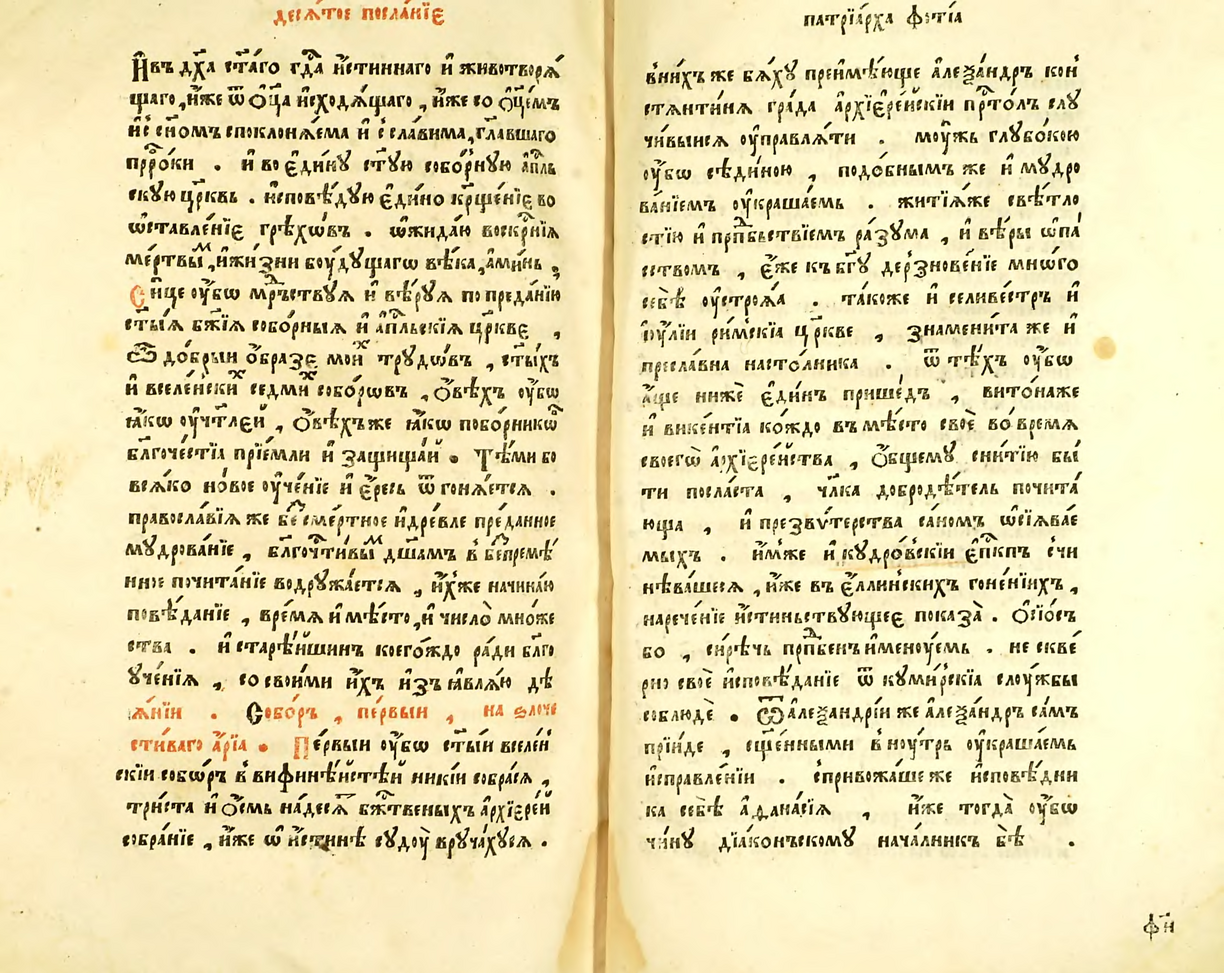 десѧ́тое посла́нїе
И҆ въ дх҃а ст҃а́го гдⷭ҇а и҆́стиннаго и҆ животворѧ́
щаго, и҆́же ѿ ѻ҆ц҃а и҆сходѧ́щаго, и҆́же со ѻ҆ц҃е́мъ
и҆ с̾ сн҃омъ споклонѧ́ема и҆ с̾сла́вима, гл҃авшаго
прⷪ҇ро́ки . и҆ во є҆ди́нꙋ ст҃ꙋю собо́рнꙋю а҆пⷭ҇ль
скꙋю цр҃квь . и҆сповѣ́дꙋю є҆ди́но кр҃ще́нїе во
ѡ҆ставле́нїе грѣхѡ́въ . ѡ҆жида́ю воскрⷭ҇нїѧ
ме́ртвыⷯ, и҆ жи́зни боу́дꙋщагѡ вѣ́ка, а҆ми́нь ,
Си́це оу҆́бѡ мꙋ́дръствꙋѧ и҆ вѣ́рꙋѧ по преда́нїю
ст҃ы́ѧ бж҃їѧ собо́рныѧ и҆ а҆пⷭ҇льскїѧ цр҃кве ,
Ѽ до́брыи ѻ҆́бразе мои́ⷯ трꙋдѡ́въ , ст҃ы́хъ
и҆ вселе́нскиⷯ седми́ собо́рѡвъ , ѻ҆́вѣхъ оу҆́бѡ
ꙗ҆́кѡ оу҆чт҃ле́й , ѻ҆́вѣхъ же ꙗ҆́кѡ побо́рникѡⷡ
бл҃гоче́стїа прїе́мли и҆ защища́й . Тѣ́ми бо
всѧ́ко но́вое оу҆че́нїе и҆ є҆́ресь ѿгонѧ́ется .
правосла́вїѧ же бе́смертное и҆ дре́вле пре́данное
мꙋдрова́нїе , бл҃гочⷭ҇ти́выⷨ дш҃а́мъ в̾ бе́премѣ́
нное почита́нїе водрꙋжа́ется , и҆́хже начина́ю
повѣ́данїе , вре́мѧ и҆ мѣ́сто, и҆ число̀ мно́же
ства . и҆ старѣ́йшинъ коего́ждо ра́ди бл҃го
ꙋче́нїѧ , со свои́ми и҆́хъ и҆зъꙗвлѧ́ю дѣ
ѧ́нїи . Собо́ръ , пе́рвыи , на ѕлоче
сти́ваго а҆́рїа . Пе́рвыи оу҆́бѡ ст҃ы́и вселе́н
скїи собѡ́ръ в̾ вифинѣ́йстѣй ники́и собра́сѧ ,
три́ста и҆ ѻ҆́смь на́десѧⷮ бжⷭ҇твеныхъ а҆рхїере́й
собра́нїе , и҆́же ѡ҆ и҆́стинѣ сꙋдоу̀ врꙋча́хꙋсѧ .
патрїа́рха фо́тїа
в̾ ни́хъ же бѧ́хꙋ преи҆мѣ́юще а҆леѯа́ндръ кон
стѧнти́нѧ гра́да а҆рхїере́йскїи прⷭ҇то́лъ слꙋ
чи́выисѧ оу҆правлѧ́ти . моу́жъ глꙋбо́кою
оу҆́бѡ сѣди́ною , подо́бнымъ же и҆ мꙋдро
ва́нїемъ оу҆краша́емь . житїѧ́же свѣ́тло
стїю и҆ прⷣпбьствїемъ ра́зꙋма , и҆ вѣ́ры ѡ҆па
сствомъ , є҆́же къ бг҃ꙋ дерзнове́нїе мно́го
себѣ̀ оу҆стро́ѧа . та́коже и҆ селиве́стръ и҆
і҆оу́лїи ри́мскїа цр҃кве , знамени́та же и҆
пресла́вна насто́лника . ѿ тѣ́хъ оу҆́бѡ
а҆́ще нижѐ є҆ди́нъ прише́дъ , вито́наже
и҆ вике́нтїа ко́ждо въ мѣ́сто своѐ во вре́мѧ
своегѡ̀ а҆рхїере́йства , ѻ҆́бщемꙋ сни́тїю бы́
ти посла́ста , чл҃ка добродѣ́тель почита́
юща , и҆ презвѵ́терства са́номъ ѡ҆сїѧва́е
мыхъ . и҆́мже и҆ кꙋдро́вскїи є҆пⷭ҇кпъ счи
нѣва́шесѧ , и҆́же въ є҆́ллинскихъ гоне́нїихъ ,
нарече́нїе и҆́стиньствꙋющее показа̀ . Ѻ҆́сїосъ
бо , си́рѣчь прⷣпбенъ и҆менꙋ́емь . не скве́
рно своѐ и҆сповѣ́данїе ѿ кꙋми́рскїа слоу́жбы
соблюдѐ . Ѿ а҆леѯандрі́и же а҆леѯа́ндръ са́мъ
прїи́де , сщ҃е́нными внꙋ́трь оу҆краша́емь
и҆справле́нїи . спривожа́ше же и҆сповѣ́дни
ка себѣ̀ а҆ѳана́сїѧ , и҆́же тогда̀ оу҆́бѡ
чи́нꙋ дїа́конъскомꙋ нача́лникъ бѣ̀ .
ф҃н